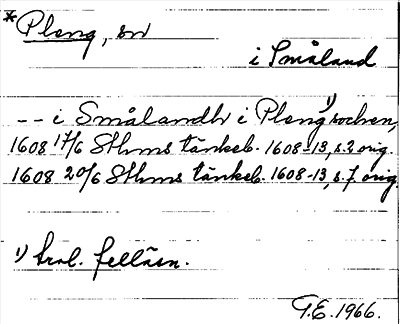 *Pleng, sn
i Småland
-- i Smålandh i Pleng¹⁾ sochen,
1608 17/6 Sthms tänkeb. 1608-13, s. 2 orig.
1608 20/6 Sthms tänkeb. 1608-13, s. 7. orig.
¹⁾ trol. felläsn.
G.E. 1966.